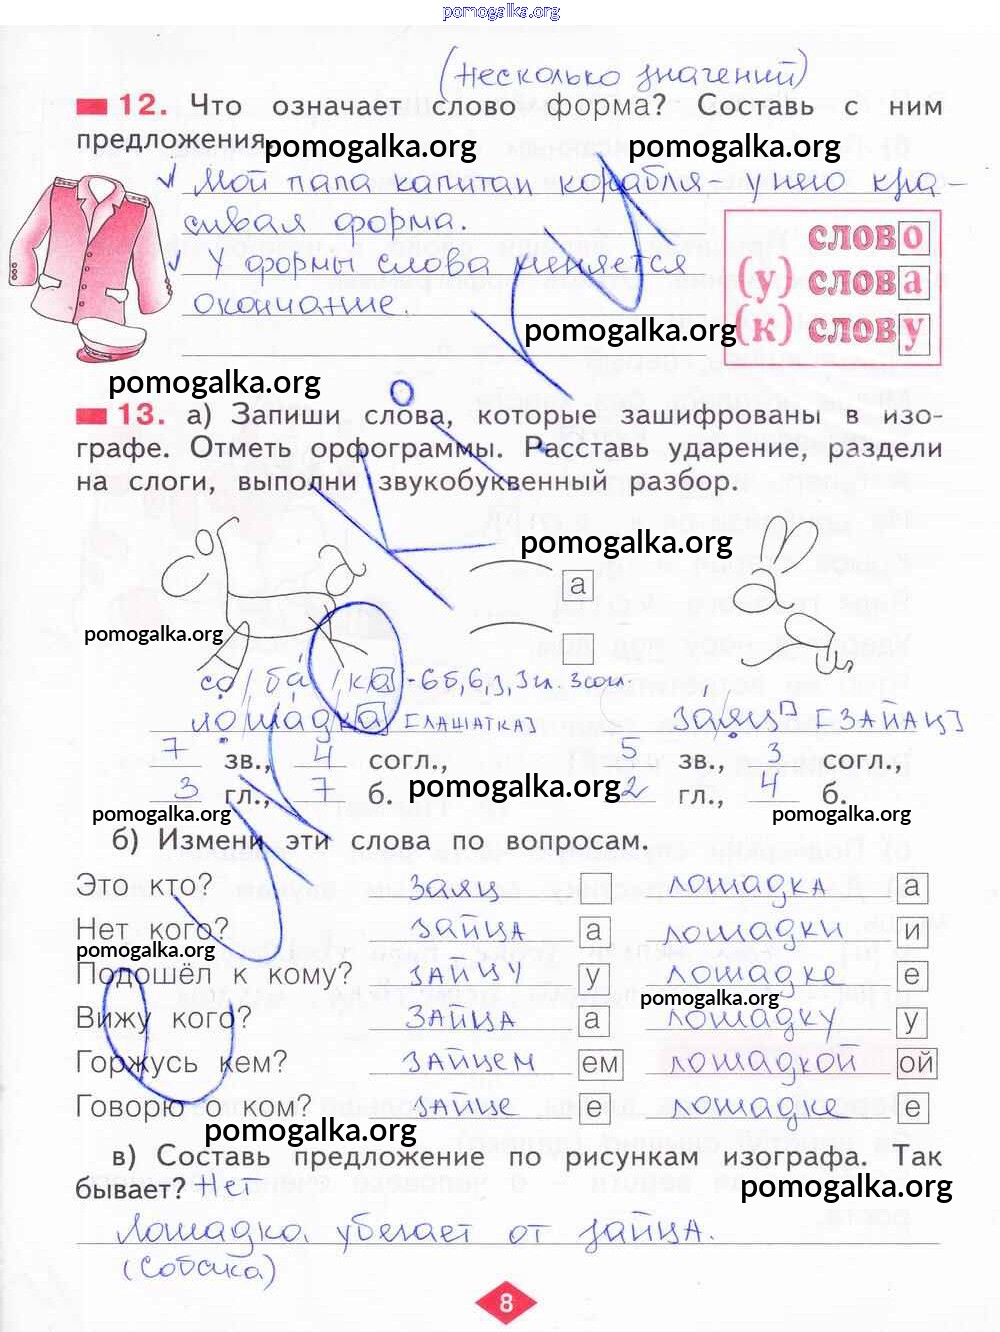 pomogalka.org
(несколько значений)
12. Что означает слово форма? Составь с ним
предложения.
pomogalka.org pomogalka.org
Мой папа капитан корабля у него кра-
сивая форма.
У формы слова меняется
окончание.
слово
(у) слова
(к) слову
pomogalka.org
pomogalka.org
13. а) Запиши слова, которые зашифрованы в изо-
графе. Отметь орфограммы. Расставь ударение, раздели
на слоги, выполни звукобуквенный разбор.
pomogalka.org
а
pomogalka.org
со/ба/ка - 6б, 6з, 3гл. 3согл.
лошадка [лашатка] заяц [зайац]
7 зв., 4 согл., 5 зв., 3 согл.,
3 гл., 7 б. 2 гл., 4 б.
pomogalka.org
pomogalka.org pomogalka.org
б) Измени эти слова по вопросам.
Это кто? заяц лошадка а
Нет кого? зайца а лошадки и
pomogalka.org
Подошёл к кому? зайцу у лошадке е
pomogalka.org
Вижу кого? зайца а лошадку у
Горжусь кем? зайцем ем лошадкой ой
Говорю о ком? зайце е лошадке е
pomogalka.org
в) Составь предложение по рисункам изографа. Так
бывает? Нет
pomogalka.org
Лошадка убегает от зайца.
(собака)
8